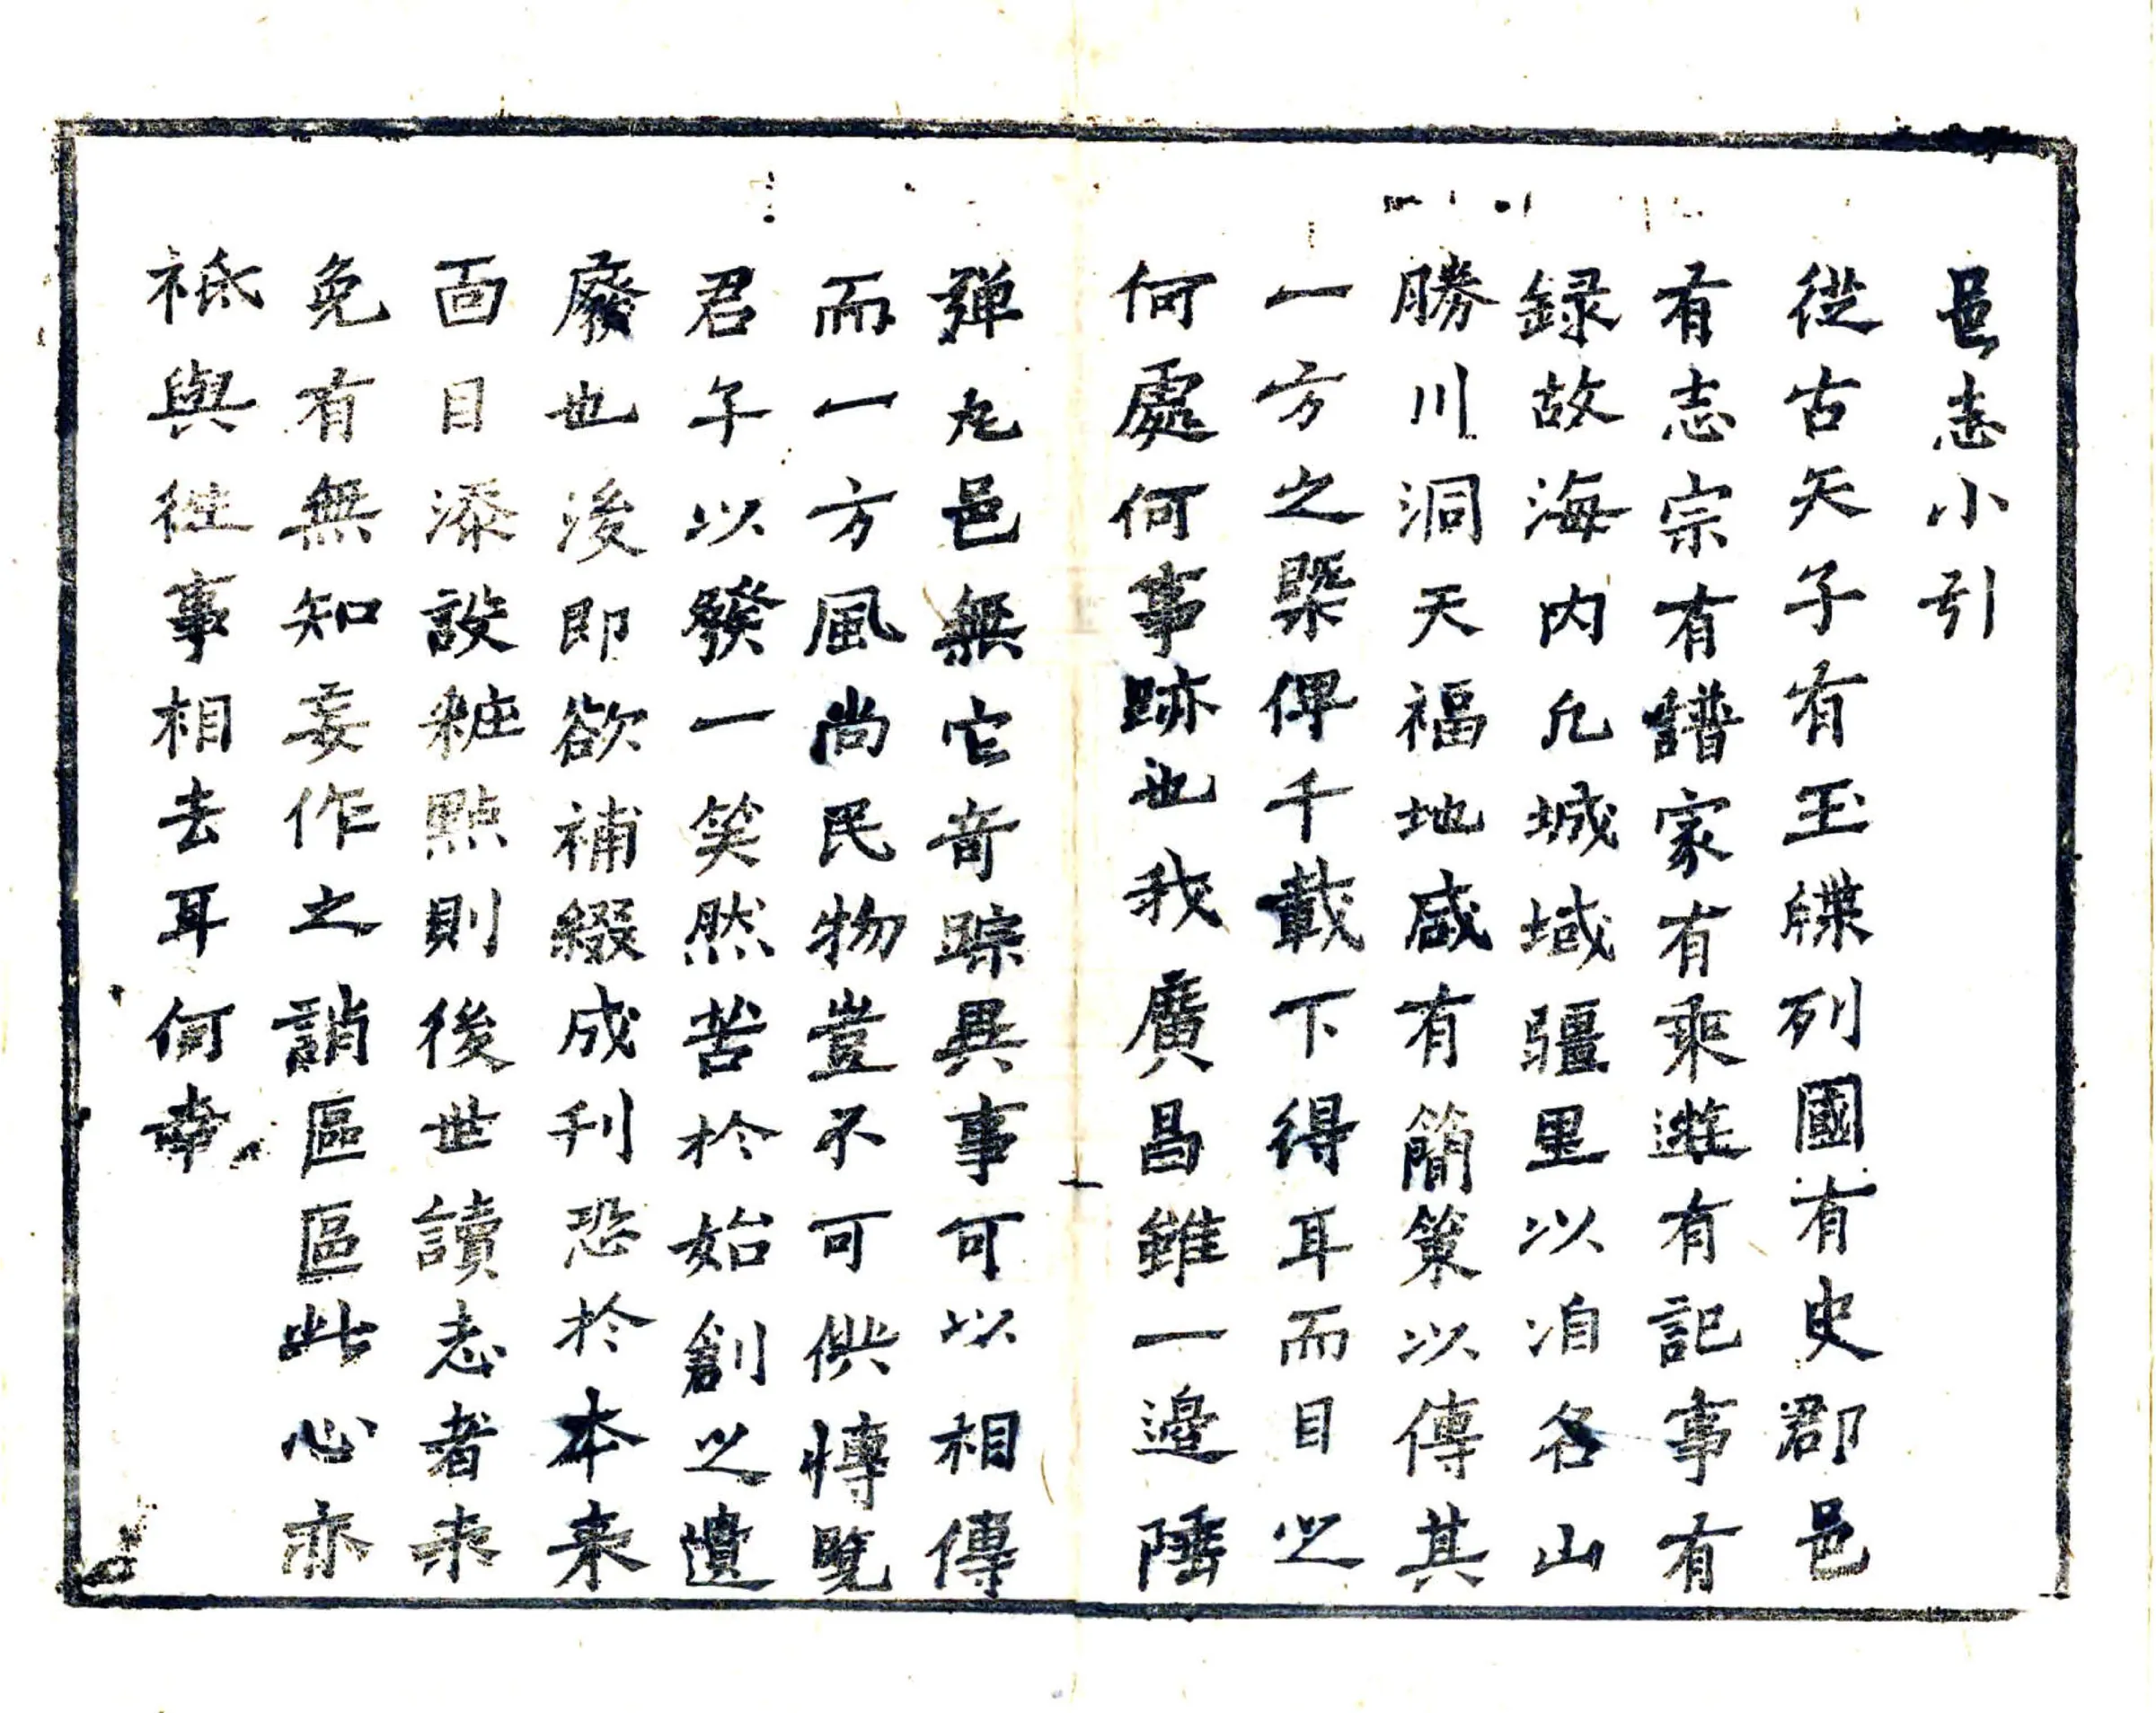 邑志小引
從古天子有玉牒列國有史郡邑
有志宗有譜家有乘遊有記事有
録故海内凢城域疆里以洎名山
勝川洞天福地咸有簡策以傳其
一方之槩俾千載下得耳而目之
何處何事跡也我廣昌雖一邉陲
弹丸邑無它竒踪異事可以相傳
而一方風尚民物豈不可供慱覧
君子以發一笑然苦於始創之遺
廢也後即欲補綴成刋恐於本来
面目添設粧㸃則後世讀志者未
免有無知妄作之誚區區此心亦
祗與徃事相去耳何幸